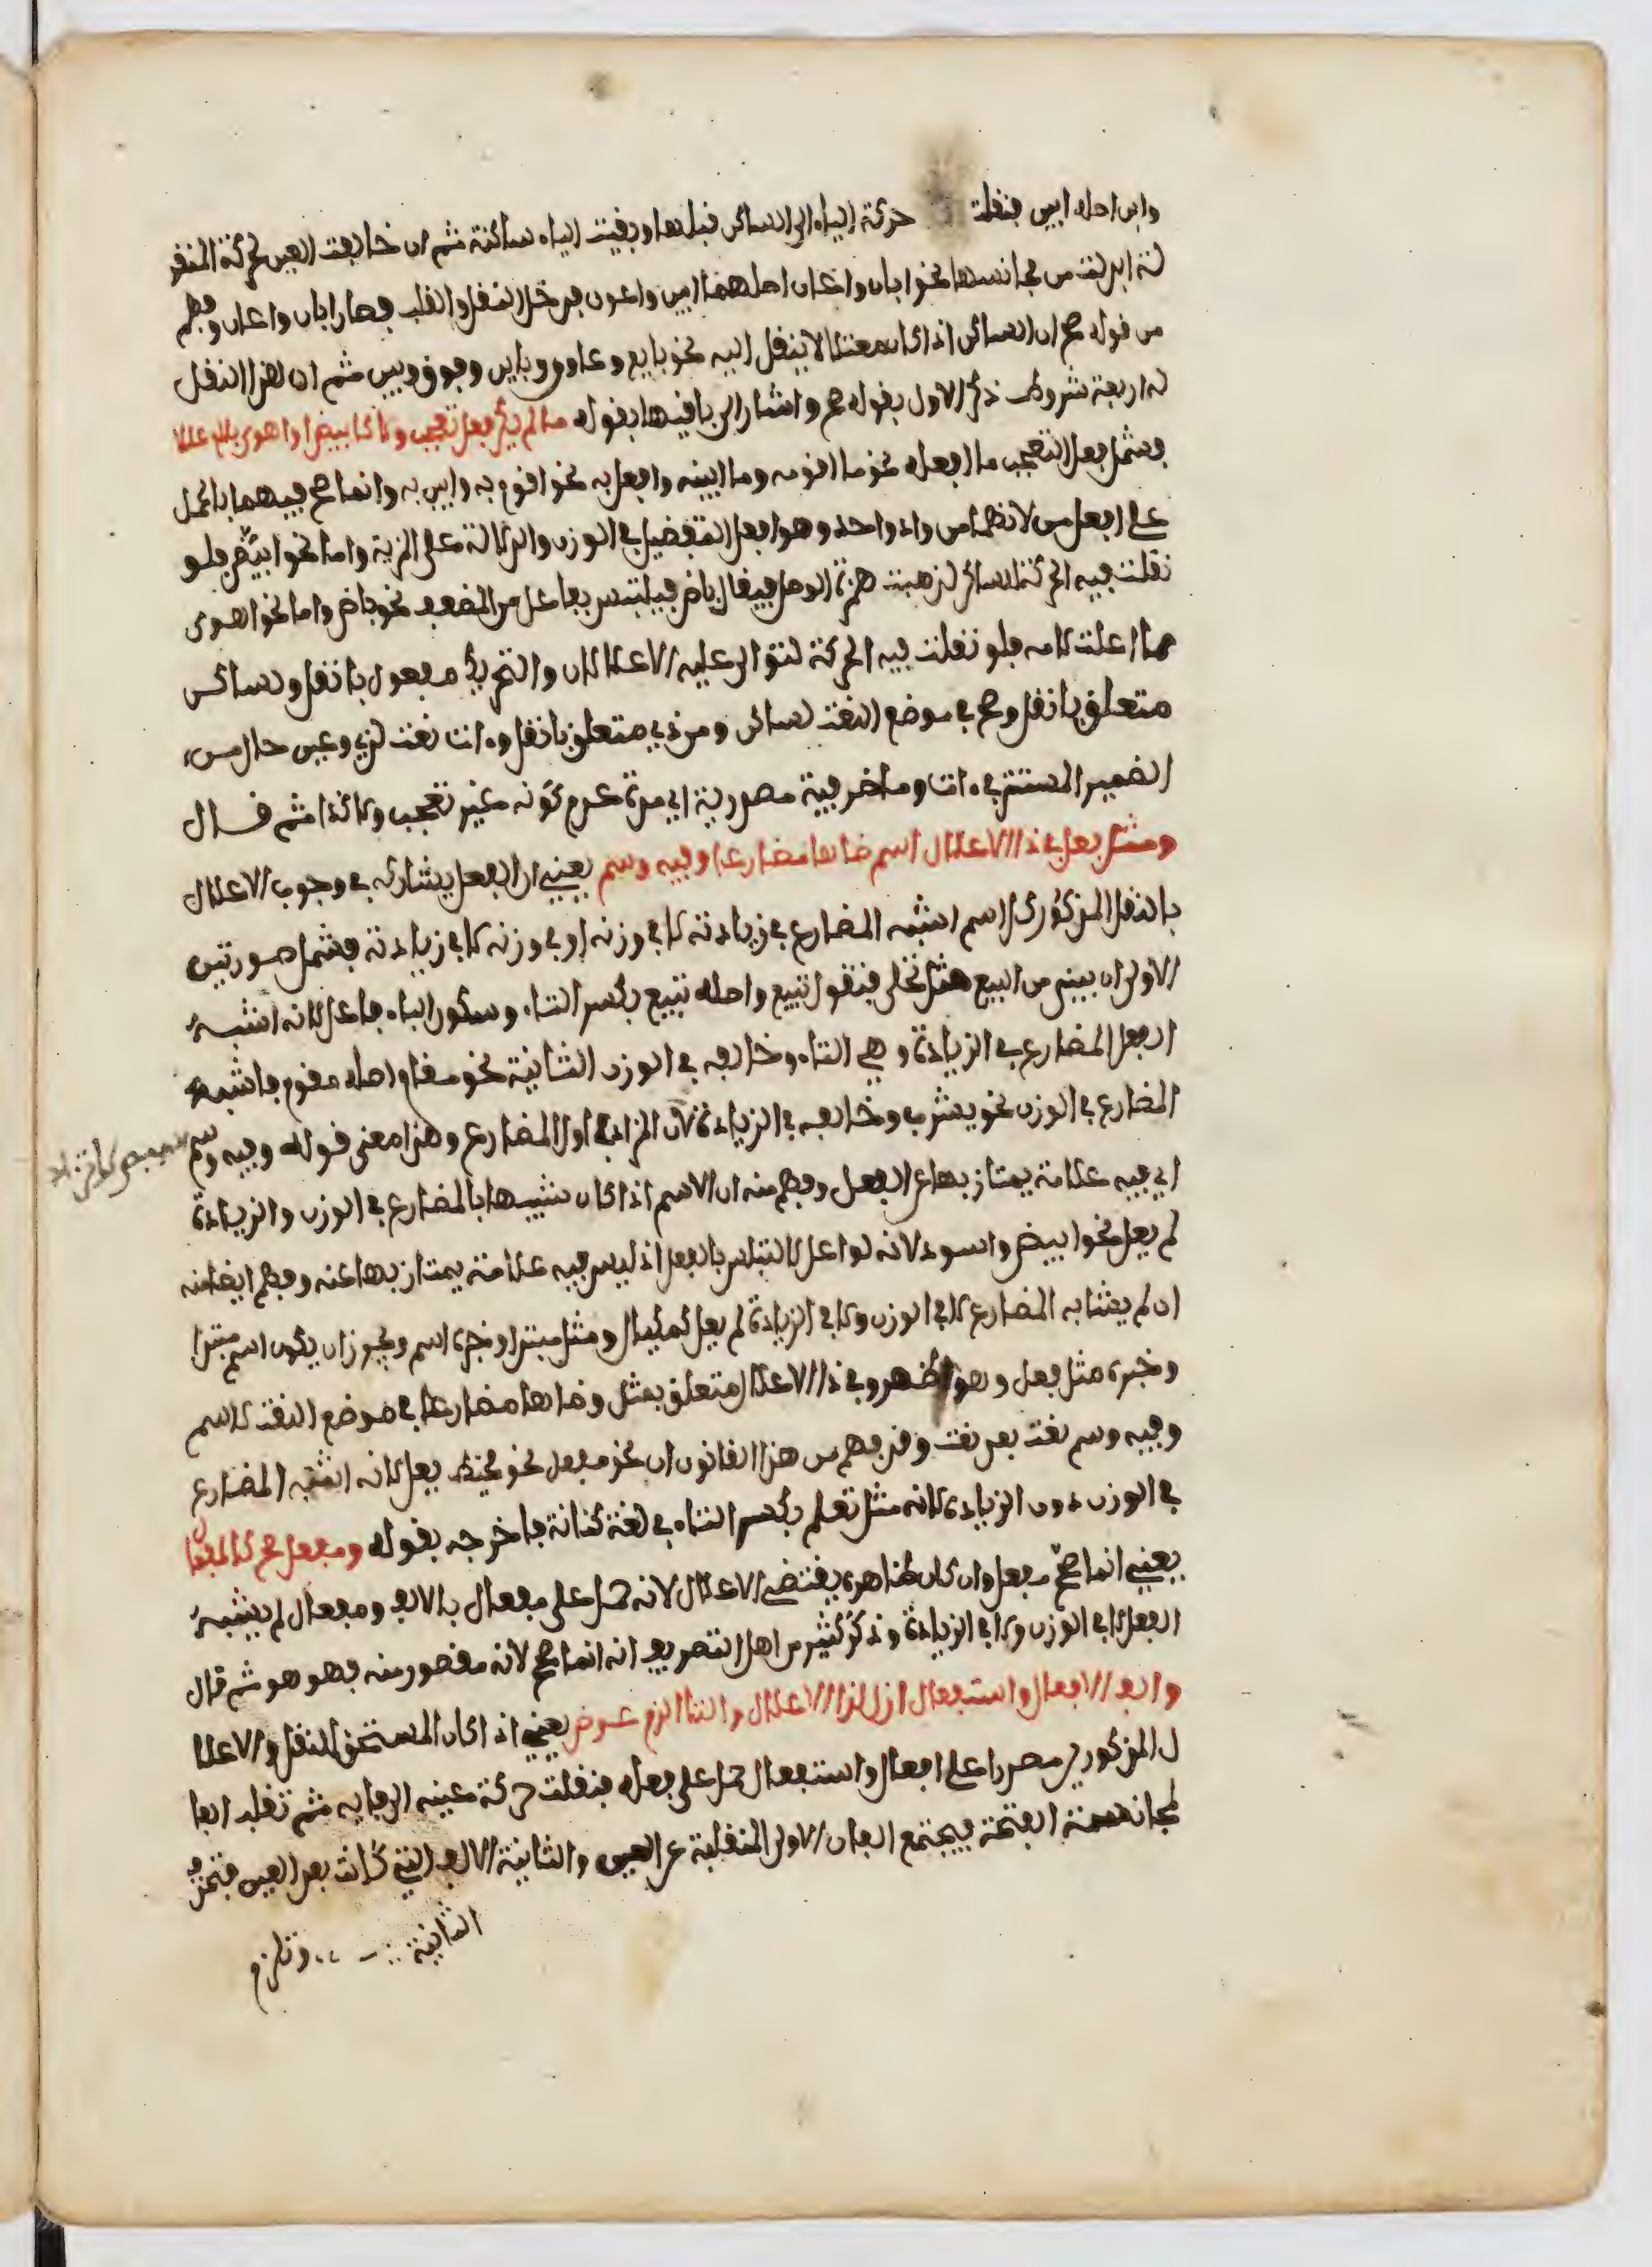 وابن اصله ابين فنقلت حركة الياء الى الساكن قبلها وبقيت الياء ساكنة ثم ان خالفت العين لحركة المنقو
لة ابدلت من مجانسها نحو ابان واعان اصلهما ابين واعون فدخل النقل والقلب فصار ابان واعان وفهم
من قوله صح ان الساكن اذا كان معتلا لا ينقل اليه نحو بايع وعاون وباين وعوق وبين ثم ان لهذا النقل
له اربعة شروط ذكر الاول بقوله صح واشار الى باقيها بقوله ما لم يكن فعل تعجب ولا كابيض او اهوى بلام عللا
فشمل فعل التعجب ما افعله نحو ما اقومه وما ابينه وافعل به نحو اقوم به وابين به وانما صح فيهما بالحمل
على افعل من لانهما من واد واحد وهو افعل التفضيل في الوزن والدلالة على المزية واما نحو ابيض فلو
نقلت فيه الحركة للساكن لذهبت همزة الوصل فيقال باض فيلتبس بفاعل من المضعف نحو باض واما نحو اهوى
مما اعلت لامه فلو نقلت فيه الحركة لتوالى عليه الاعلالان والتحريك مفعول بانقل ولساكن
متعلق بانقل وصح في موضع النعت لساكن ومن ذي متعلق بانقل وءات نعت لذي وعين حال من
الضمير المستتر في ءات وما ظرفية مصدرية اي مدة عدم كونه غير تعجب ولا كذا ثم قال
ومثل فعل في ذا الاعلال اسم ضاها مضارعا وفيه وسم يعني ان الفعل يشاركه في وجوب الاعلال
بالنقل المذكور كل اسم اشبه المضارع في زيادته لا في وزنه او في وزنه لا في زيادته فشمل صورتين
الاولى ان يبنى من البيع مثل تحلى فتقول تبيع واصله تبيع بكسر التاء وسكون الباء فاعل لانه اشبه
الفعل المضارع في الزيادة وهي التاء وخالفه في الوزن الثانية نحو مقام اصله مقوم فاشبه
المضارع في الوزن نحو يشرب وخالفه في الزيادة لان الميم لا تزاد اول المضارع وهذا معنى قوله وفيه وسم
اي فيه علامة يمتاز بها عن الفعل وفهم منه ان الاسم اذا كان شبيها بالمضارع في الوزن والزيادة
لم يعل نحو ابيض واسود لانه لو اعل لالتبس بالفعل اذ ليس فيه علامة يمتاز بها عنه وفهم ايضا منه
ان لم يشابه المضارع لا في الوزن ولا في الزيادة لم يعل كمكيال ومثل مبتدا وخبره اسم ويجوز ان يكون اسم مبتدا
وخبره مثل فعل وهو اظهر وفي ذا الاعلال متعلق بمثل وضاها مضارعا في موضع النعت لاسم
وفيه وسم نعت بعد نعت وقد فهم من هذا القانون ان نحو مفعل نحو مخيط يعل لانه اشبه المضارع
في الوزن دون الزيادة لانه مثل تعلم بكسر التاء في لغة كنانة فاخرجه بقوله ومفعل صح كالمفعال
يعني انما صح مفعل وان كان ظاهره يقتضي الاعلال لانه حمل على مفعال بالالف ومفعال لم يشبه
الفعل لا في الوزن ولا في الزيادة وذكر كثير من اهل التصريف انه انما صح لانه مقصور منه فهو هو ثم قال
والف الافعال واستفعال ازل لذا الاعلال والتا الزم عوض يعني اذا كان المستحق للنقل والاعلا
ل المذكور مصدرا على افعال واستفعال حمل على فعله فنقلت حركة عينه الى فايه ثم تقلب الفا
لمجانسة الفتحة فيجتمع الفان الاولى المنقلبة عن العين والثانية الالف التي كانت بعد العين فتحذف
الثانية وتلزم